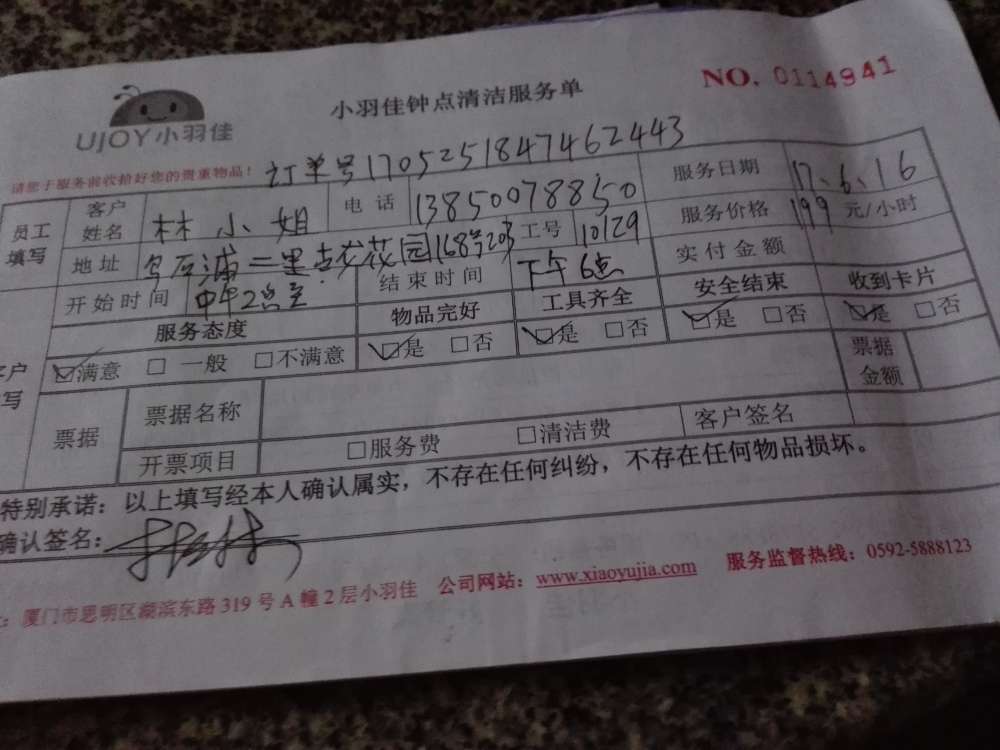 UJOY小羽佳
小羽佳钟点清洁服务单
NO. 0114941
请您于服务前收拾好您的贵重物品！
订单号170525184746 2443
员工填写 客户姓名 林小姐 电话 13850078850 服务日期 17.6.16
地址 乌石浦二里 花园168号203 工号 10129 服务价格 199 元/小时
开始时间 中午2点至 结束时间 下午6点 实付金额
服务态度 物品完好 工具齐全 安全结束 收到卡片
户写 ☑满意 □一般 □不满意 ☑是 □否 ☑是 □否 ☑是 □否 ☑是 □否
票据 票据名称 票据金额
开票项目 □服务费 □清洁费 客户签名
特别承诺：以上填写经本人确认属实，不存在任何纠纷，不存在任何物品损坏。
确认签名：
：厦门市思明区湖滨东路319号A幢2层小羽佳 公司网站：www.xiaoyujia.com 服务监督热线：0592-5888123